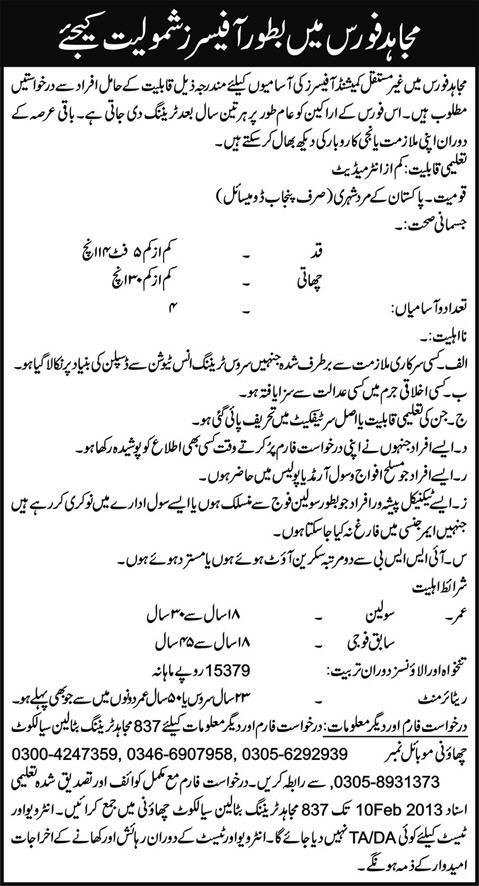 مجاہد فورس میں بطور آفیسرز شمولیت کیجئے
مجاہد فورس میں غیر مستقل کمیشنڈ آفیسرز کی آسامیوں کیلئے مندرجہ ذیل قابلیت کے حامل افراد سے درخواستیں
مطلوب ہیں۔ اس فورس کے اراکین کو عام طور پر ہر تین سال بعد ٹریننگ دی جاتی ہے۔ باقی عرصہ کے
دوران اپنی ملازمت یا نجی کاروبار کی دیکھ بھال کر سکتے ہیں۔
تعلیمی قابلیت: کم از انٹر میڈیٹ
قومیت۔ پاکستان کے مرد شہری (صرف پنجاب ڈومیسائل)
جسمانی صحت:۔
قد - کم از کم ۵ فٹ ۴ انچ
چھاتی - کم از کم ۳۰ انچ
تعداد و آسامیاں: ۴
نااہلیت:۔
الف۔ کسی سرکاری ملازمت سے برطرف شدہ جنہیں سروس ٹریننگ انس ٹیوشن سے ڈسپلن کی بنیاد پر نکالا گیا ہو۔
ب۔ کسی اخلاقی جرم میں کسی عدالت سے سزا یافتہ ہو۔
ج۔ جن کی تعلیمی قابلیت یا اصل سرٹیفکیٹ میں تحریف پائی گئی ہو۔
د۔ ایسے افراد جنہوں نے اپنی درخواست فارم پُر کرتے وقت کسی بھی اطلاع کو پوشیدہ رکھا ہو۔
ر۔ ایسے افراد جو مسلح افواج و سول آرمڈ یا پولیس میں حاضر ہوں۔
ز۔ ایسے ٹیکنیکل پیشہ ور افراد جو بطور سولین فوج سے منسلک ہوں یا ایسے سول ادارے میں نوکری کر رہے ہیں
جنہیں ایمرجنسی میں فارغ نہ کیا جا سکتا ہوں۔
س۔ آئی ایس ایس بی سے دو مرتبہ سکرین آؤٹ ہوئے ہوں یا مسترد ہوئے ہوں۔
شرائط اہلیت
عمر۔ سولین - ۱۸ سال سے ۳۰ سال
سابق فوجی - ۱۸ سال سے ۴۵ سال
تنخواہ اور الاؤنسز دوران تربیت: 15379 روپے ماہانہ
ریٹائرمنٹ - ۲۳ سال سروس یا ۵۰ سال عمر دونوں میں سے جو بھی پہلے ہو۔
درخواست فارم اور دیگر معلومات: درخواست فارم اور دیگر معلومات کیلئے 837 مجاہد ٹریننگ بٹالین سیالکوٹ
چھاؤنی موبائل نمبر 0305-6292939 ,0346-6907958 ,0300-4247359
0305-8931373، سے رابطہ کریں۔ درخواست فارم مع مکمل کوائف اور تصدیق شدہ تعلیمی
اسناد 10Feb 2013 تک 837 مجاہد ٹریننگ بٹالین سیالکوٹ چھاؤنی میں جمع کرائیں۔ انٹرویو اور
ٹیسٹ کیلئے کوئی TA/DA نہیں دیا جائے گا۔ انٹرویو اور ٹیسٹ کے دوران رہائش اور کھانے کے اخراجات
امیدوار کے ذمہ ہونگے۔